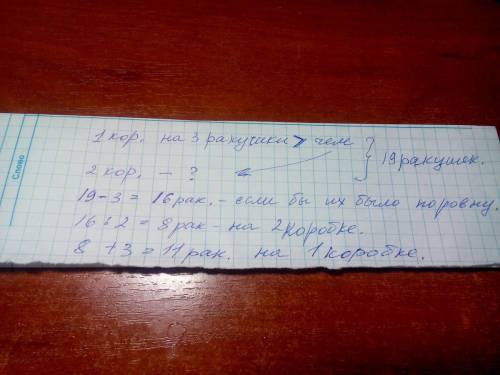 Слово
1 кор. на 3 ракушки > чем
2 кор. - ?
} 19 ракушек.
19-3 = 16 рак. - если бы их было поровну.
16:2 = 8 рак - на 2 коробке.
8 + 3 = 11 рак. на 1 коробке.